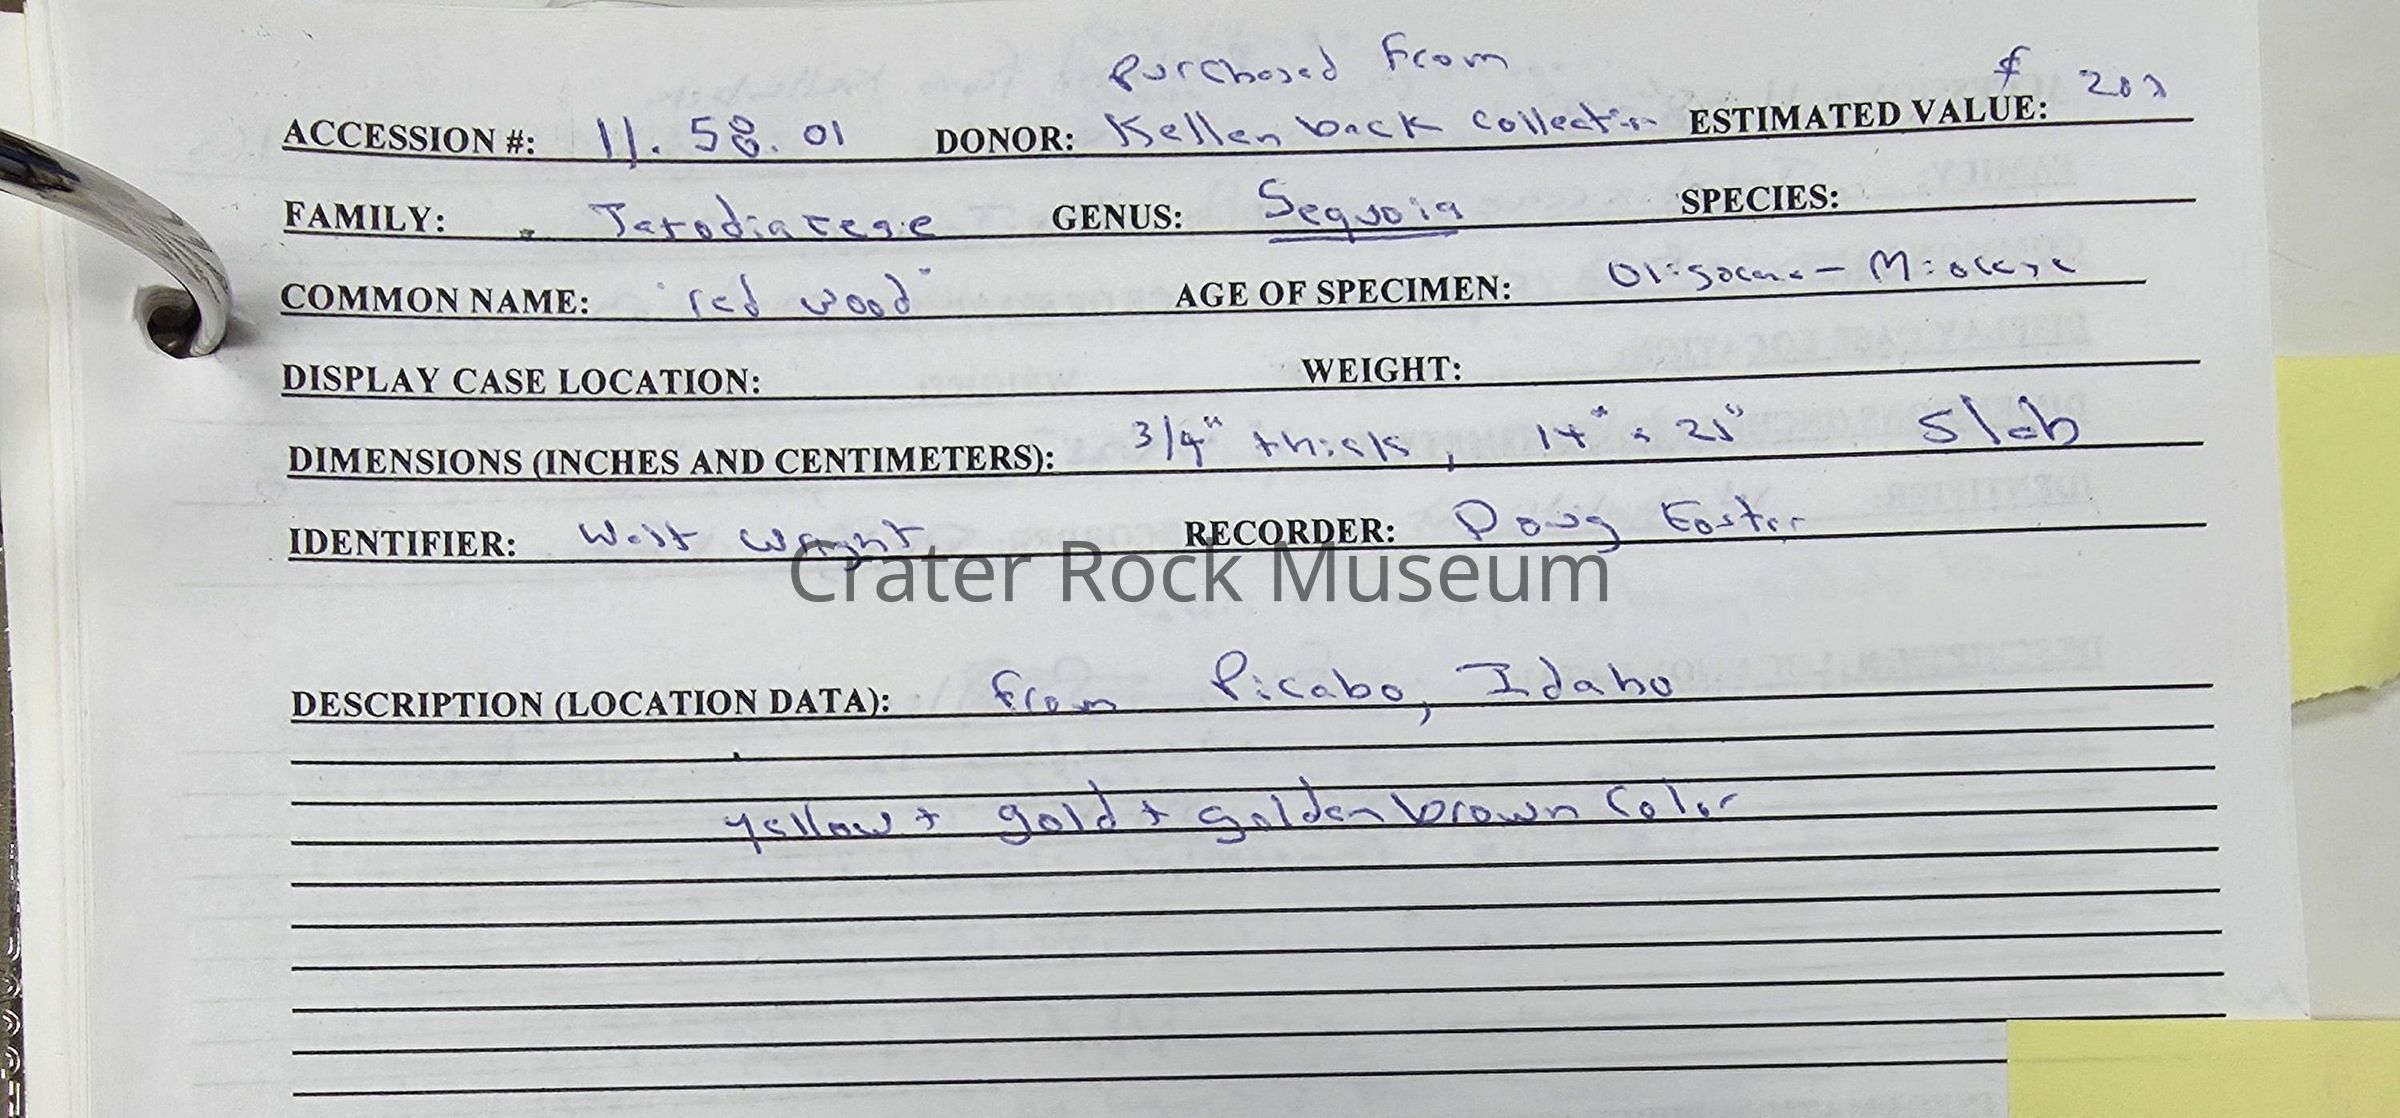 Purchased From
ACCESSION #: 11.58.01 DONOR: Kellenback collection ESTIMATED VALUE: $
FAMILY: GENUS: Sequoia SPECIES:
COMMON NAME: "red wood" AGE OF SPECIMEN: Oligocene - Miocene
DISPLAY CASE LOCATION: WEIGHT:
DIMENSIONS (INCHES AND CENTIMETERS): 3/4" thick, 14" x 21" Slab
IDENTIFIER: Walt Wright RECORDER: Doug Foster
Crater Rock Museum
DESCRIPTION (LOCATION DATA): From Picabo, Idaho
yellow + gold + golden brown color